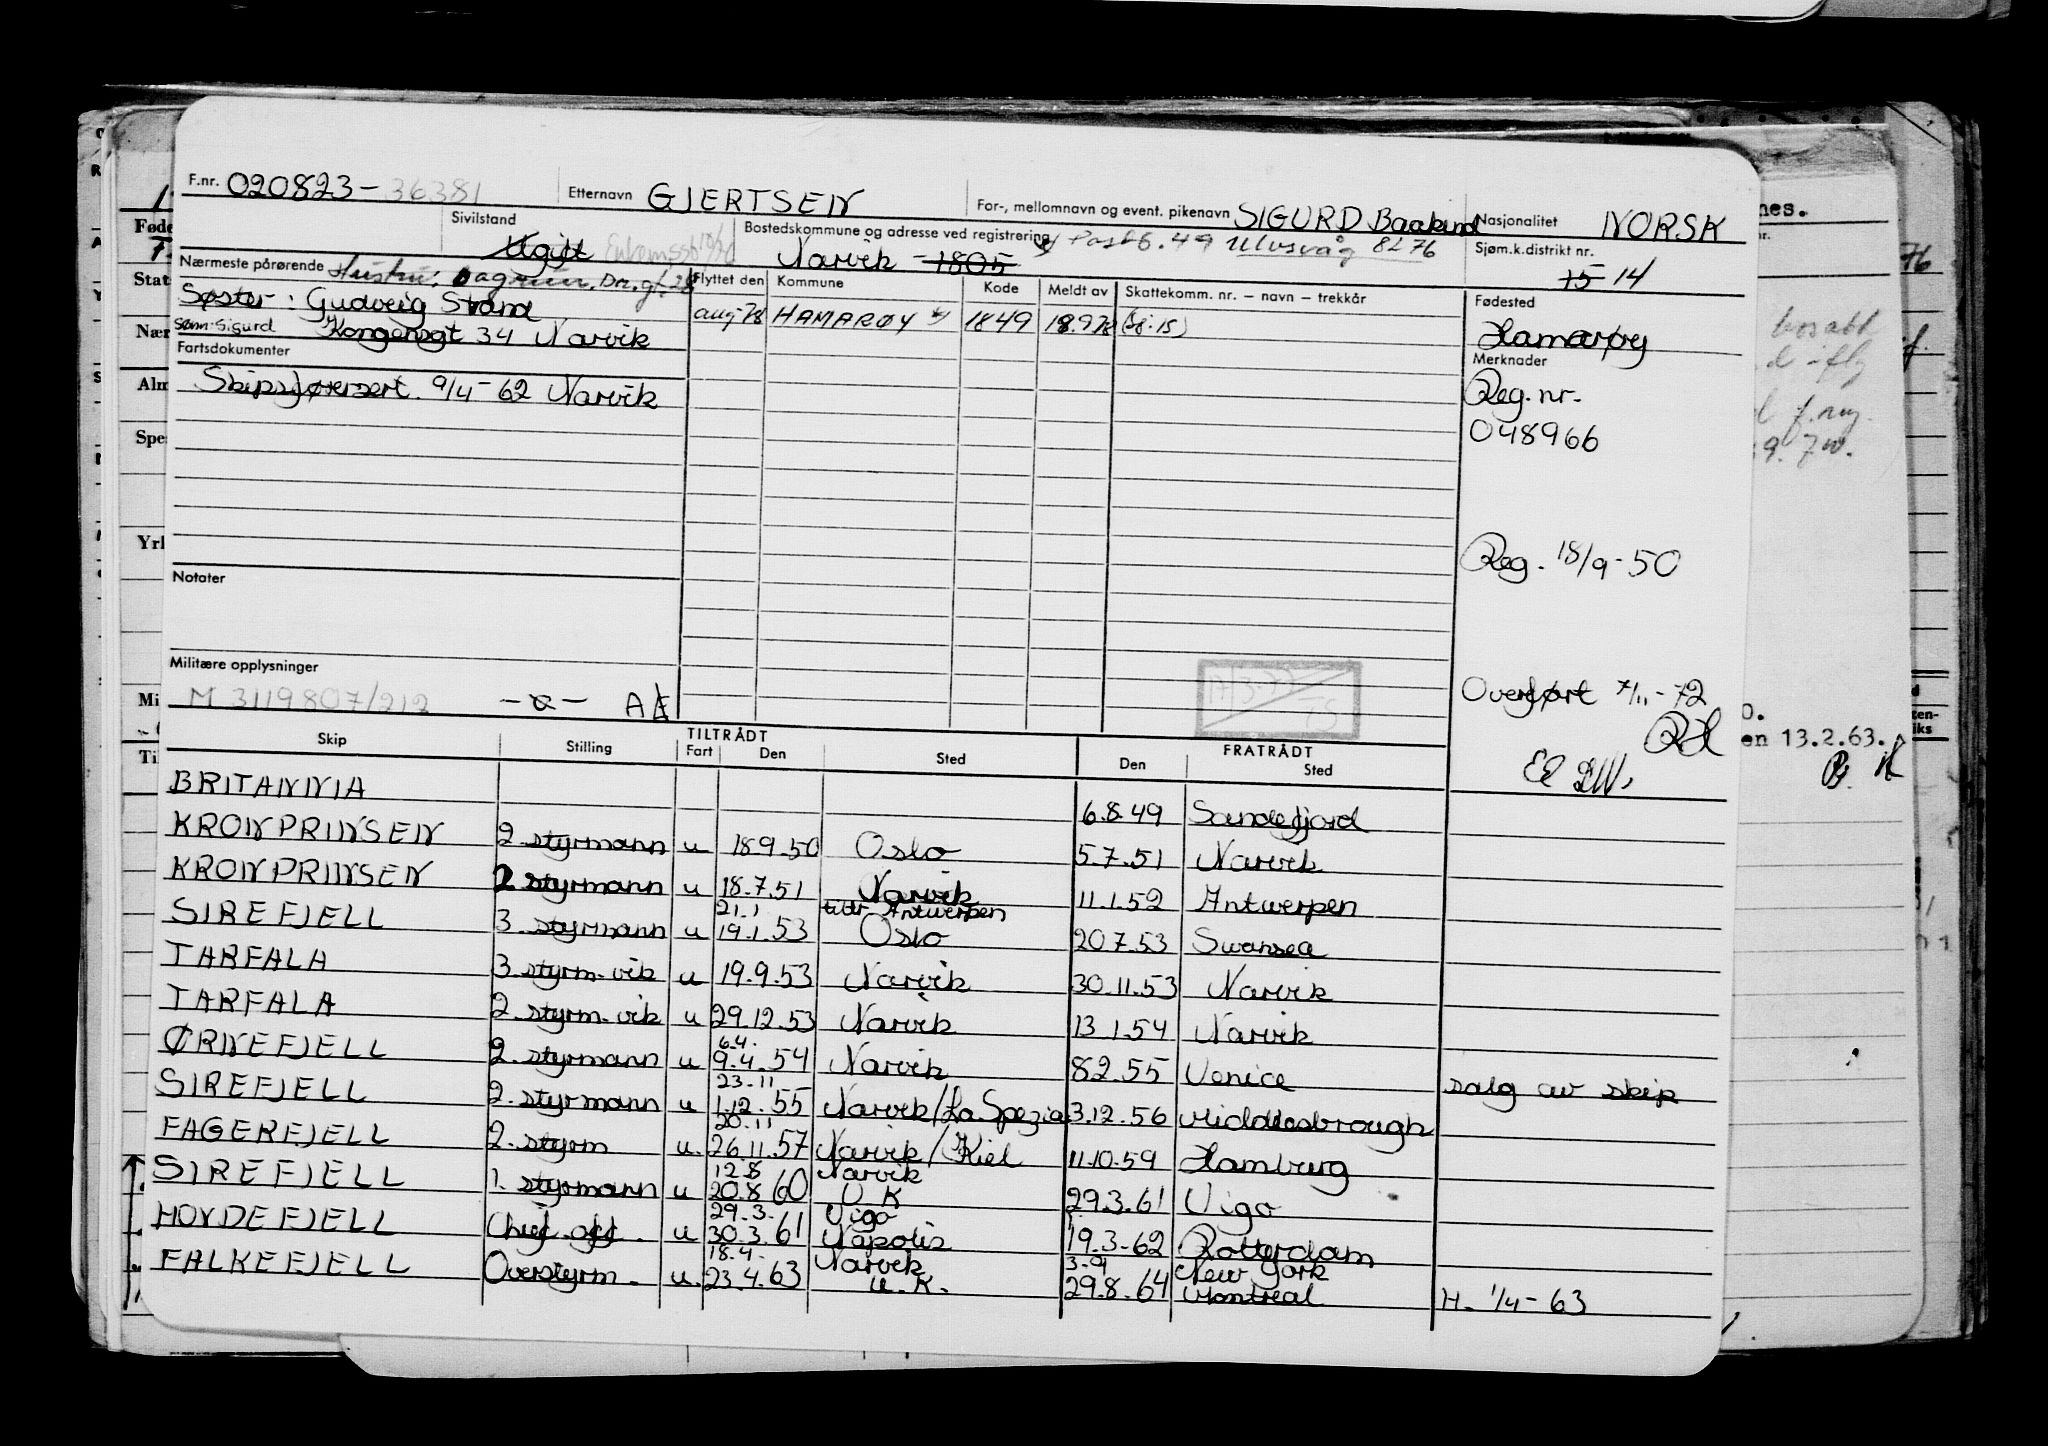 F.nr. 020823-36381 Etternavn GJERTSEN For-, mellomnavn og event. pikenavn SIGURD Nasjonalitet NORSK
Sivilstand Ugift Bostedskommune og adresse ved registrering Narvik 1805 49 Ulvsvåg 8276 Sjøm.k.distrikt nr. 15 14
Nærmeste pårørende Hustru: Dagrun
Søster: Gudveig Strand
Kongensgt 34 Narvik
Flyttet den Kommune Kode Meldt av Skattekomm. nr. – navn – trekkår
aug-78 HAMARØY 1849 18.9.78
Fødested
Hamarøy
Fartsdokumenter
Skipsførersert. 9/4-62 Narvik
Merknader
Reg. nr.
048966
Reg. 18/9-50
Notater
Militære opplysninger
M 3119807/212
Overført 7/11-72
Skip Stilling TILTRÅDT Fart Den Sted FRATRÅDT Den Sted
BRITANNIA 6.8.49 Sandefjord
KRONPRINSEN 2. styrmann u 18.9.50 Oslo 5.7.51 Narvik
KRONPRINSEN 2 styrmann u 18.7.51 Narvik 11.1.52 Antwerpen
21.1 Antwerpen
SIREFJELL 3. styrmann u 19.1.53 Oslo 20.7.53 Swansea
TARFALA 3. styrm-vik u 19.9.53 Narvik 30.11.53 Narvik
TARFALA 2. styrm-vik u 29.12.53 Narvik 13.1.54 Narvik
6.4.
ØRNEFJELL 2. styrmann u 9.4.54 Narvik 8.2.55 Venice salg av skip
23.11
SIREFJELL 2. styrmann u 1.12.55 Narvik/La Spezia 3.12.56 Middlesbrough
20.11
FAGERFJELL 2. styrm u. 26.11.57 Narvik/Kiel 11.10.59 Hamburg
12.8 Narvik
SIREFJELL 1. styrmann u 20.8.60 U.K 29.3.61 Vigo
29.3. Vigo
HOVDEFJELL Chief.off. u 30.3.61 Napolis 19.3-62 Rotterdam
18.4. Narvik 3-9 New York
FALKEFJELL Overstyrm. u. 23.4.63 U.K. 29.8.64 Montreal H. 1/4-63
en 13.2.63.